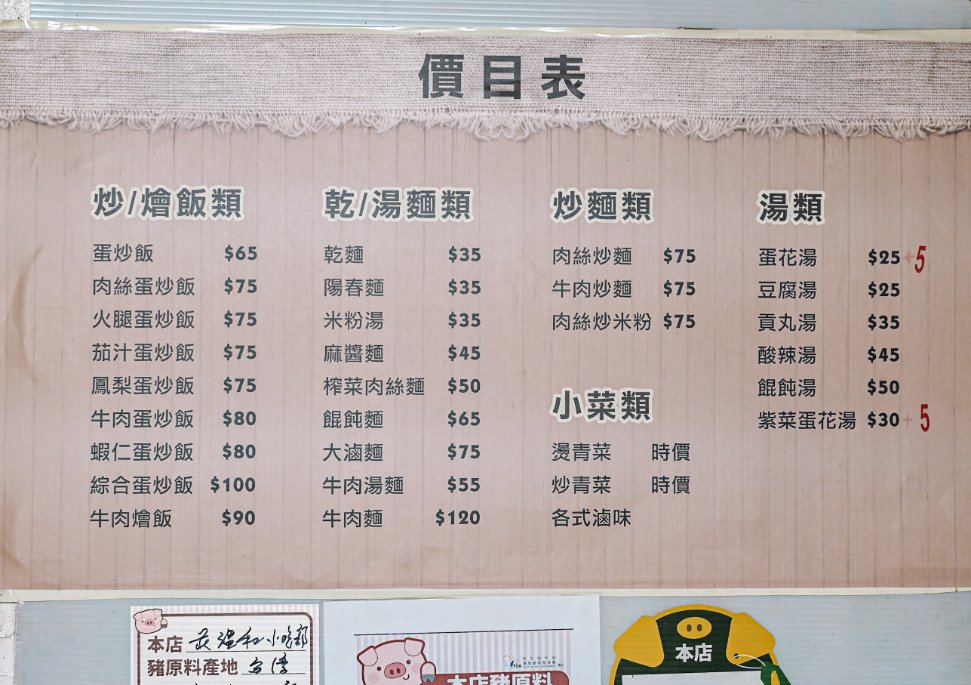 價目表
炒/燴飯類
蛋炒飯 $65
肉絲蛋炒飯 $75
火腿蛋炒飯 $75
茄汁蛋炒飯 $75
鳳梨蛋炒飯 $75
牛肉蛋炒飯 $80
蝦仁蛋炒飯 $80
綜合蛋炒飯 $100
牛肉燴飯 $90
乾/湯麵類
乾麵 $35
陽春麵 $35
米粉湯 $35
麻醬麵 $45
榨菜肉絲麵 $50
餛飩麵 $65
大滷麵 $75
牛肉湯麵 $55
牛肉麵 $120
炒麵類
肉絲炒麵 $75
牛肉炒麵 $75
肉絲炒米粉 $75
小菜類
燙青菜 時價
炒青菜 時價
各式滷味
湯類
蛋花湯 $25+5
豆腐湯 $25
貢丸湯 $35
酸辣湯 $45
餛飩湯 $50
紫菜蛋花湯 $30+5
本店 溫和小吃部
豬原料產地 台灣
本店豬原料
本店